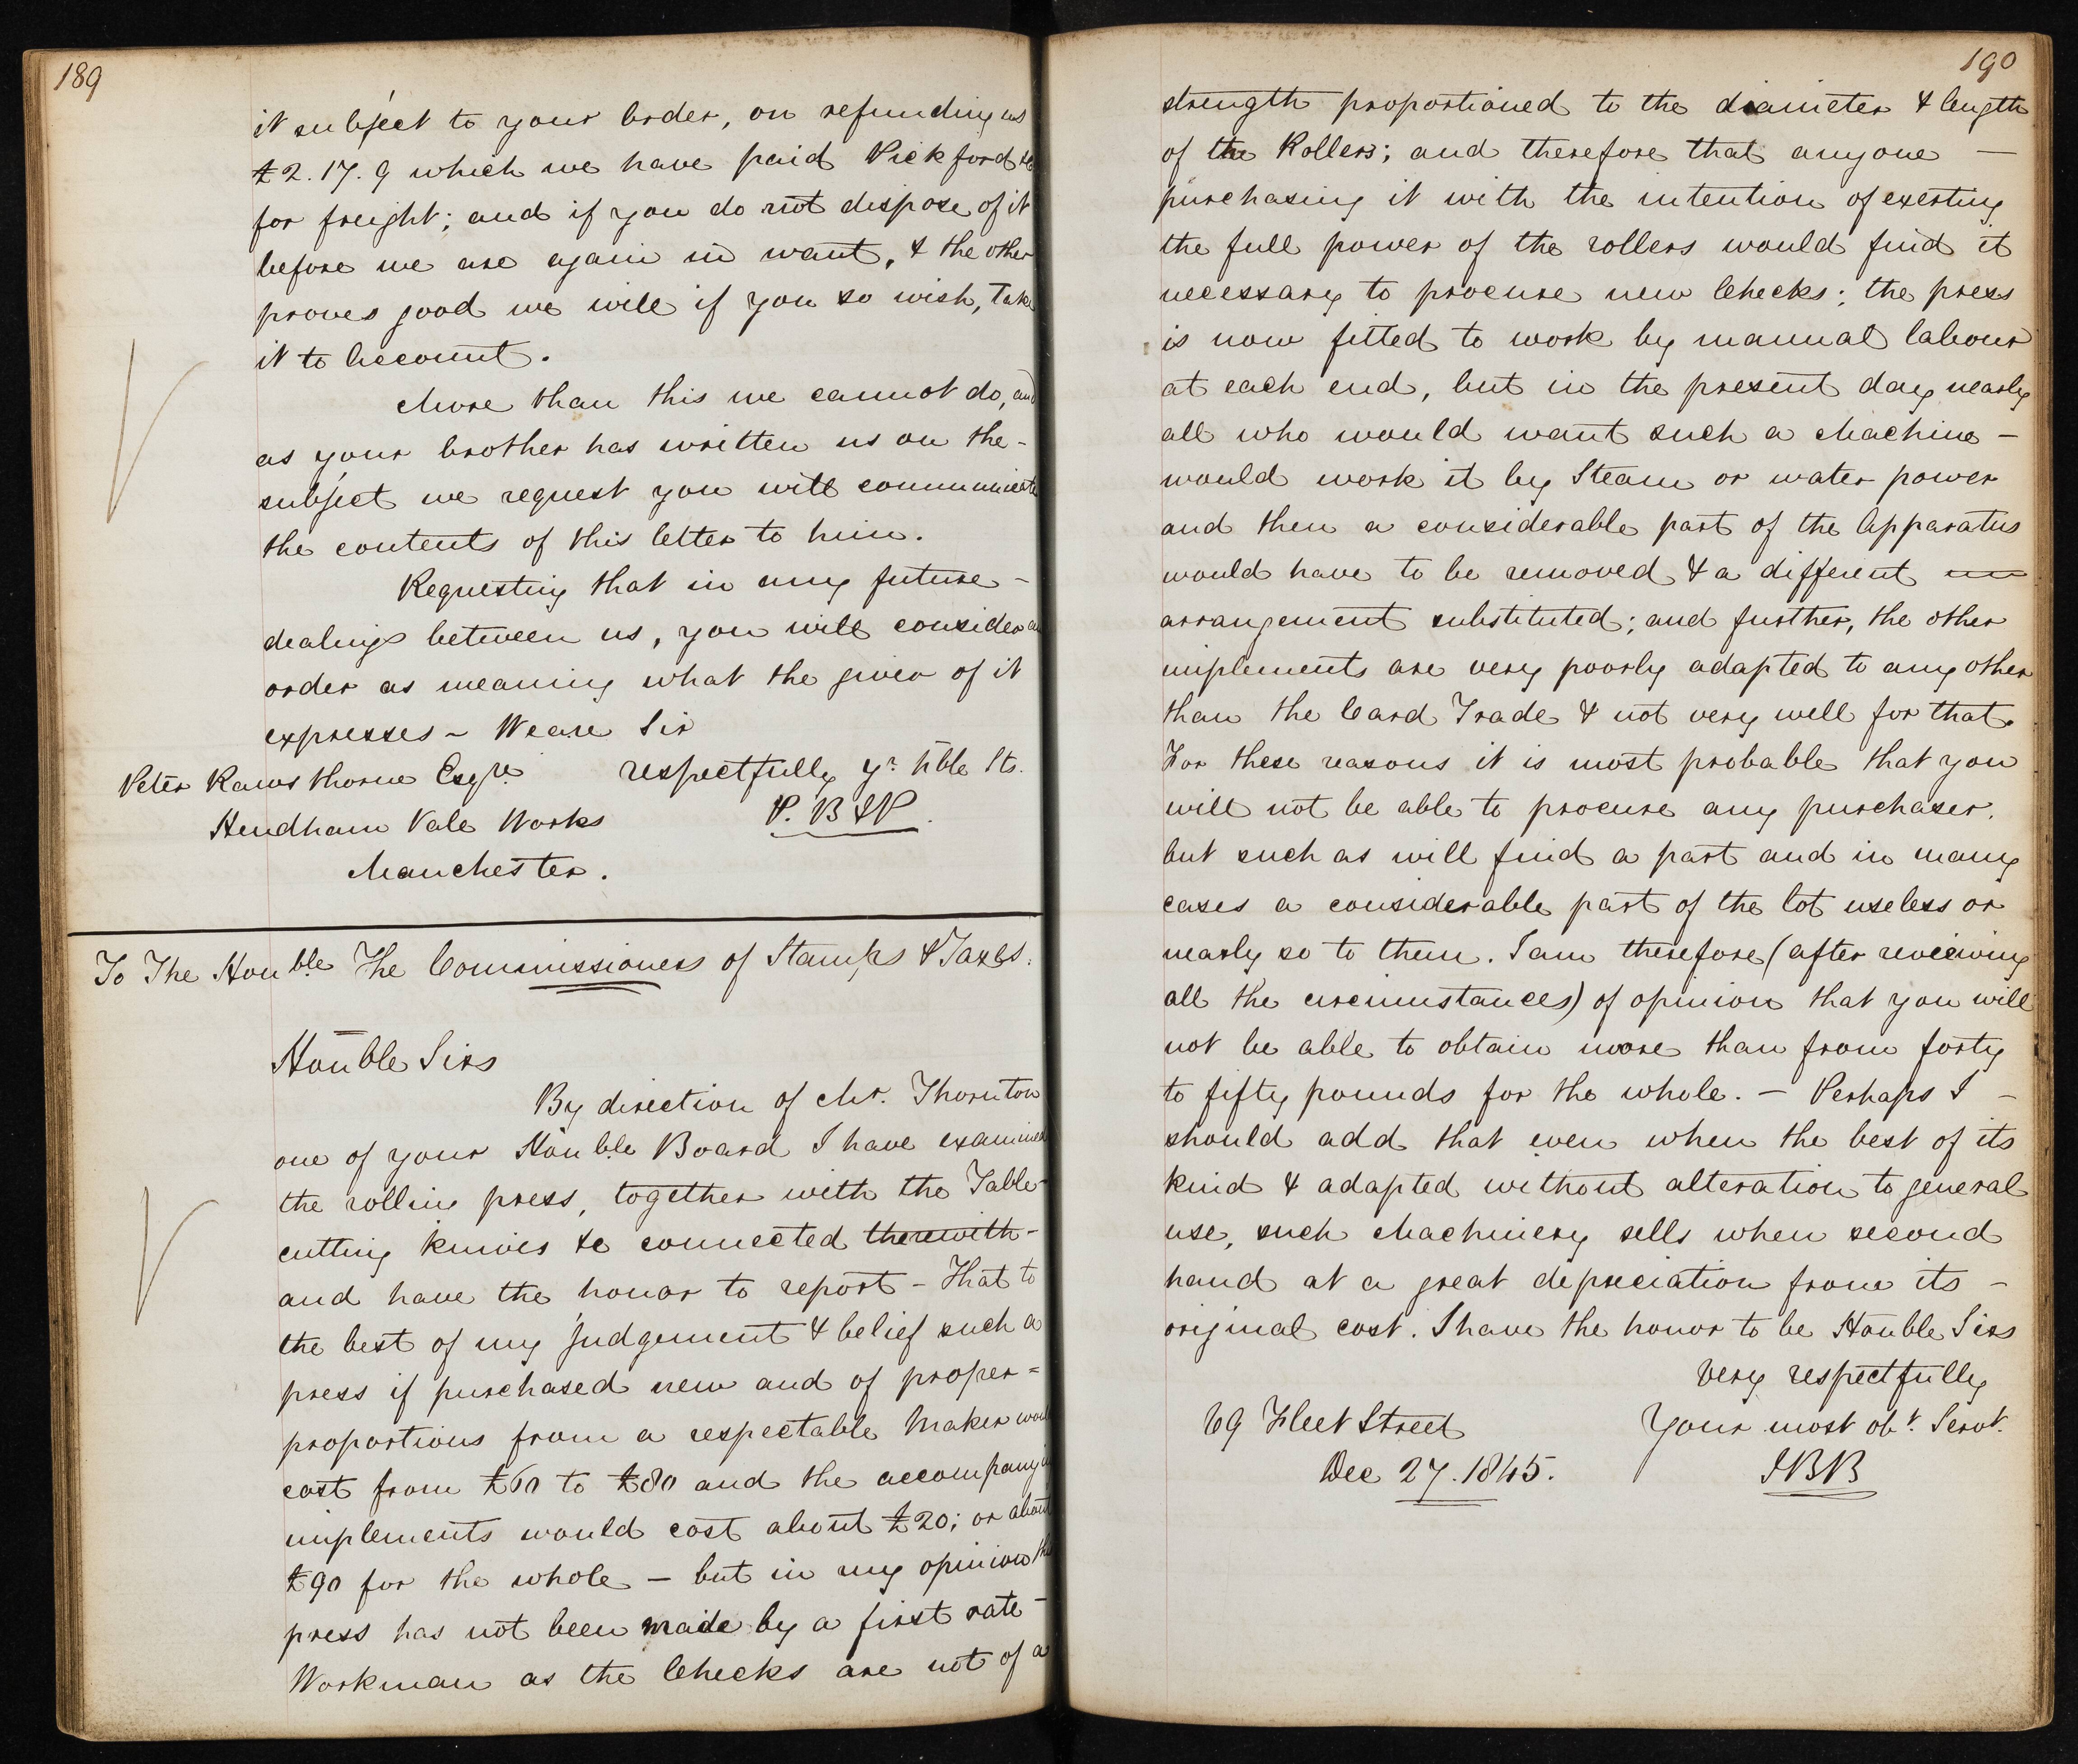 189
it subject to your order, on refunding us
£2.17.9 which we have paid Pickford &c
for freight; and if you do not dispose of it
before we are again in want, & the other
proves good we will if you so wish, take
it to Account.
More than this we cannot do, and
as your brother has written us on the -
subject we request you will communicate
the contents of this letter to him.
Requesting that in any future -
dealings between us, you will consider an
order as meaning what the giver of it
expresses ~ We are Sir
respectfully yr. hble Sts.
P. B & P.
Peter Rawsthorne Esqre
Hendham Vale Works
Manchester.
To The Honble The Commissioners of Stamps & Taxes.
Honble Sirs
By direction of Mr. Thornton
one of your Honble Board I have examined
the rolling press, together with the Table
cutting knives &c connected therewith -
and have the honor to report - That to
the best of my Judgement & belief such a
press if purchased new and of proper =
proportions from a respectable Maker would
cost from £60 to £80 and the accompanying
implements would cost about £20; or about
£90 for the whole - but in my opinion the
press has not been made by a first rate -
Workman as the Checks are not of a
190
strength proportioned to the diameter & length
of the Rollers; and therefore that anyone -
purchasing it with the intention of exerting
the full power of the rollers would find it
necessary to procure new Checks; the press
is now fitted to work by manual labour
at each end, but in the present day nearly
all who would want such a Machine -
would work it by Steam or water power
and then a considerable part of the Apparatus
would have to be removed & a different
arrangement substituted; and further, the other
implements are very poorly adapted to any other
than the Card Trade & not very well for that.
For these reasons it is most probable that you
will not be able to procure any purchaser,
but such as will find a part and in many
cases a considerable part of the lot useless or
nearly so to them. I am therefore (after reveiwing
all the circumstances) of opinion that you will
not be able to obtain more than from forty
to fifty pounds for the whole. - Perhaps I -
should add that even when the best of its
kind & adapted without alteration to general
use, such Machinery sells when second
hand at a great depreciation from its -
original cost. I have the honor to be Honble Sirs
very respectfully
Your most obt. Servt.
JBB
69 Fleet Street
Dec 27. 1845.